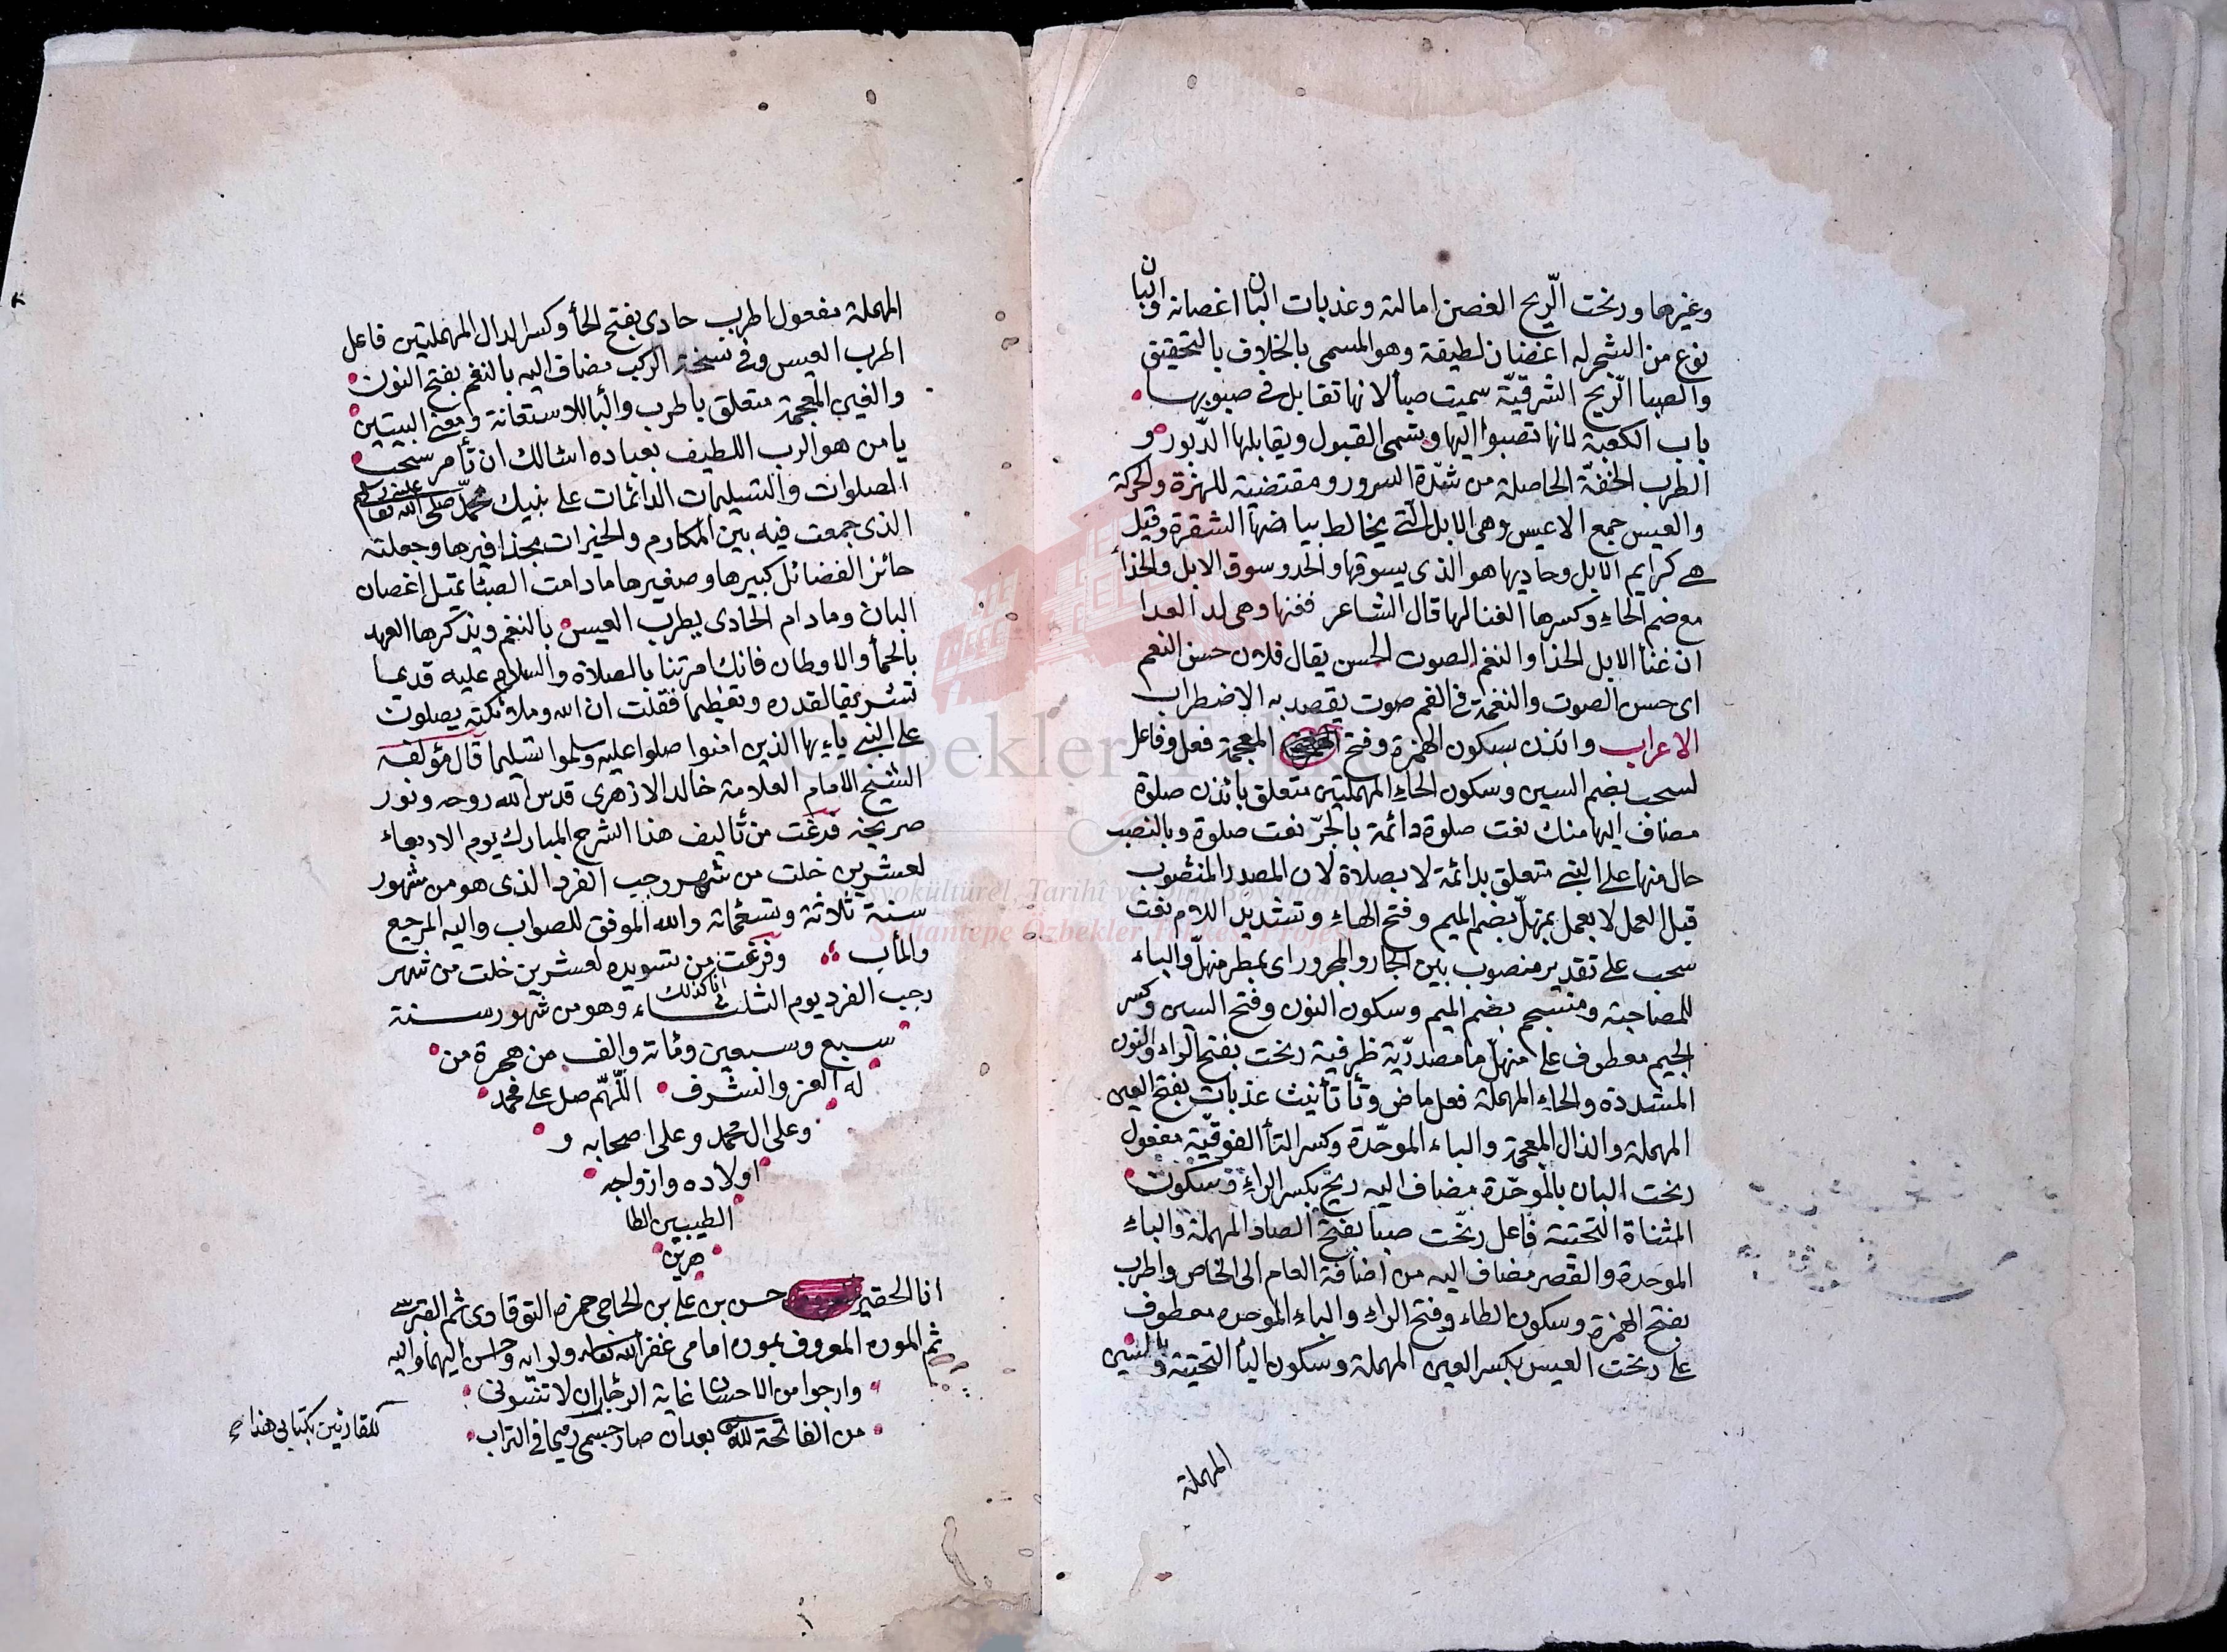 وغيرها ورنحت الّريح الغصن امالته وعذبات البان اغصانه والبان
نوع من الشجر له اغصان لطيفة وهو المسمى بالخلاف بالتحقيق
والصبا الّريح الشرقيّة سميت صبأ لانها تقابل في صبوبها
باب الكعبة لانها تصبوا اليها وتسمى القبول ويقابلها الدّبور و
الطرب الخفّة الحاصلة من شدّة السرور ومقتضية للهزة والحركة
والعيس جمع الاعيس وهى الابل الّتى يخالط بياضها الشقرة وقيل
هى كرايم الابل وحاديها هو الذى يسوقها والحدو سوق الابل والحذأ
مع ضم الحاء وكسرها الغنا لها قال الشاعر فغنها وهى لدا لعدا
ان غنأ الابل الحذا والنغم الصوت الحسن يقال فلان حسن النغم
اى حسن الصوت والنغمة في الفم صوت يقصد به الاضطراب
الاعراب وائذن بسكون الهمزة وفتح المعجمة فعل وفاعل
لسحب بضم السين وسكون الحاء المهملتين متعلق بائذن صلوة
مضاف اليها منك نعت صلوة دائمة بالجرّ نعت صلوة وبالنصب
حال منها على النبى متعلق بدائمة لا بصلاة لان المصدر المنصوب
قبل العمل لا يعمل بمنهلّ بضم الميم وفتح الهاء وتشديد اللام نعت
سحب على تقدير منصوب بين الجار والمجرور اى بمطر منهلّ والباء
للمصاحبة ومنسجم بضم الميم وسكون النون وفتح السين وكسر
الجيم معطوف على منهلّ ما مصدريّة ظرفية رنحت بفتح الراء والنون
المشددة والحاء المهملة فعل ماض وتأ تأنيث عذبات بفتح العين
المهملة والذال المعجمة والباء الموحّدة وكسر التأ الفوقيّة مفعول
رنحت البان بالموحّدة مضاف اليه ريح بكسر الراء وسكون
المثناة التحتية فاعل رنّحت صبا بفتح الصاد المهملة والباء
الموحدة والقصر مضاف اليه من اضافة العام الى الخاص واطرب
بفتح الهمزة وسكون الطاء وفتح الراء والباء الموحده معطوف
على رنحت العيس بكسر العين المهملة وسكون اليأ التحتية وبالسين
المهملة
المهملة مفعول اطرب حادى بفتح الحأ وكسر الدال المهملتين فاعل
اطرب العيس وفى نسخة الركب مضاف اليه بالنغم بفتح النون
والغين المعجمة متعلق باطرب والبأ للاستعانة ومعنى البيتين
يا من هو الرب اللطيف بعباده اسالك ان تأمر سحب
الصلوات والتسليمات الدائمات على نبيك محمّد صلى الله تعالى عليه وسلم
الذى جمعت فيه بين المكارم والخيرات بحذافيرها وجعلته
حائز الفضائل كبيرها وصغيرها ما دامت الصبا تميل اغصان
البان وما دام الحادى يطرب العيس بالنغم ويذكرها العهد
بالحمأ والاوطان فانك امرتنا بالصلاة والسلام عليه قديما
تشريفا لقدره وتعظيما فقلت ان الله وملائكته يصلون
على النبى ياءيها الذين امنوا صلوا عليه وسلموا تسليما قال مؤلفه
الشيخ الامام العلامة خالد الازهرى قدس الله روحه ونور
ضريحه فرغت من تأليف هذا الشرح المبارك يوم الاربعاء
لعشرين خلت من شهر رجب الفرد الذى هو من شهور
سنة ثلاثة وتسعمائة والله الموفق للصواب واليه المرجع
والمأب وفرغت من تسويده لعشرين خلت من شهر
انا كذلك
رجب الفرد يوم الثلثاء وهو من شهور سنة
سبع وسبعين ومائة والف من هجرة من
له العز والشرف اللّهم صل على محمد
وعلى ال محمد وعلى اصحابه و
اولاده وازواجه
الطيبين الطا
هرين
انا الحقير حسن بن على بن الحاجى حمزه التوقادى ثم القرشى
ثم الموره المعروف بموره امامى غفر الله تعالى ولوالديه واحسن اليهما واليه
وارجوا من الاحسان غاية الرجا ان لا تنسونى
من الفاتحة لله بعد ان صار جسمى رميما فى التراب
للقارئين بكتابى هذا